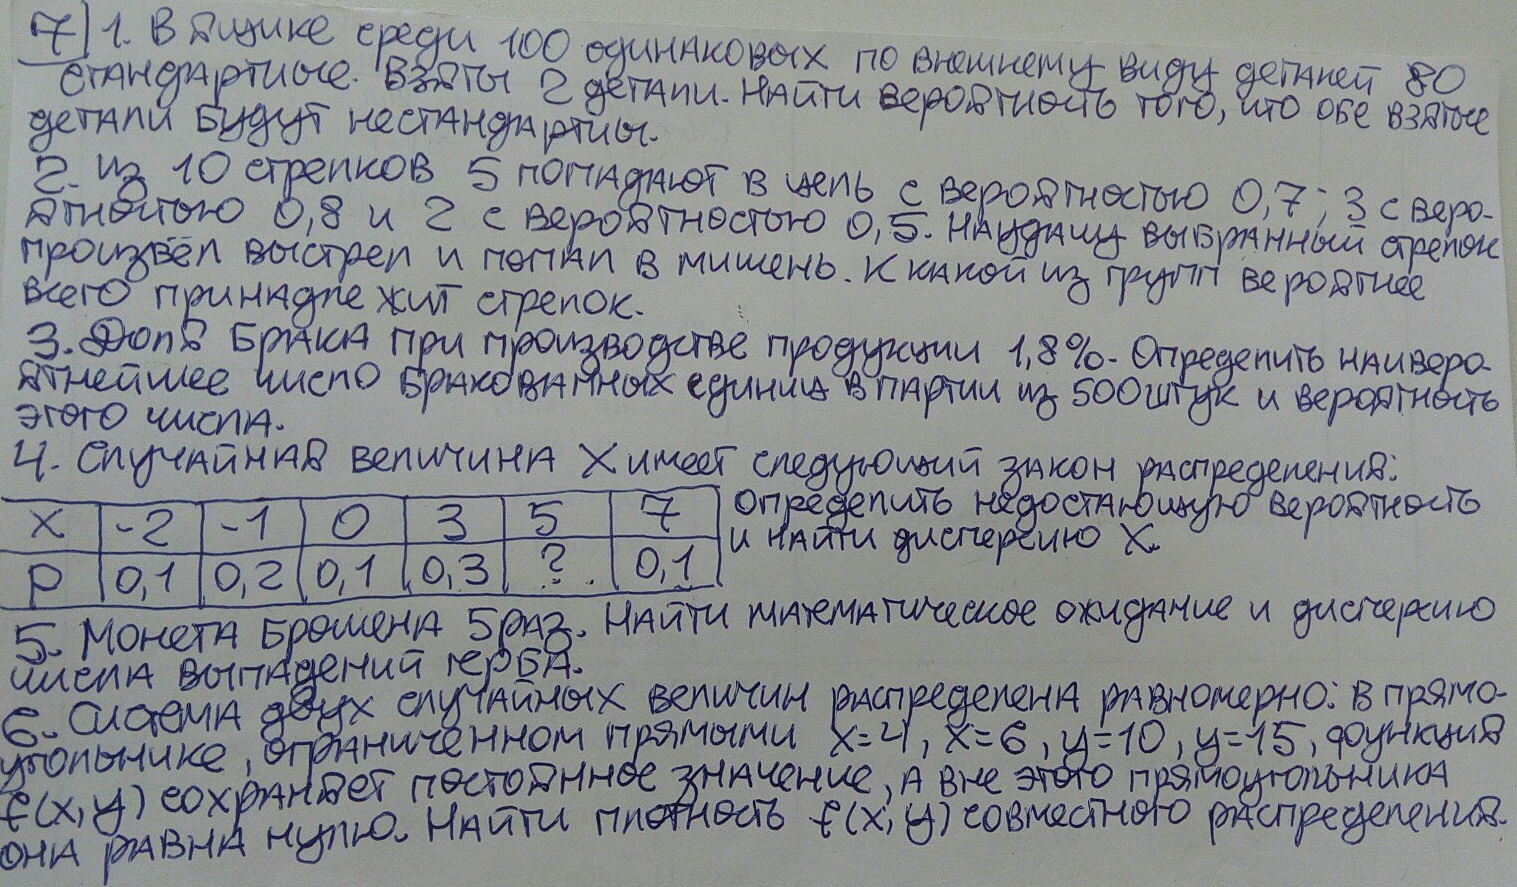 7) 1. В ящике среди 100 одинаковых по внешнему виду деталей 80
стандартные. Взяты 2 детали. Найти вероятность того, что обе взятые
детали будут нестандартны.
2. Из 10 стрелков 5 попадают в цель с вероятностью 0,7; 3 с веро-
ятностью 0,8 и 2 с вероятностью 0,5. Наудачу выбранный стрелок
произвёл выстрел и попал в мишень. К какой из групп вероятнее
всего принадлежит стрелок.
3. Доля брака при производстве продукции 1,8%. Определить наиверо-
ятнейшее число бракованных единиц в партии из 500 штук и вероятность
этого числа.
4. Случайная величина X имеет следующий закон распределения:
X -2 -1 0 3 5 7
P 0,1 0,2 0,1 0,3 ? 0,1
Определить недостающую вероятность
и найти дисперсию X.
5. Монета брошена 5 раз. Найти математическое ожидание и дисперсию
числа выпадений герба.
6. Система двух случайных величин распределена равномерно: в прямо-
угольнике, ограниченном прямыми x=4, x=6, y=10, y=15, функция
f(x,y) сохраняет постоянное значение, а вне этого прямоугольника
она равна нулю. Найти плотность f(x,y) совместного распределения.